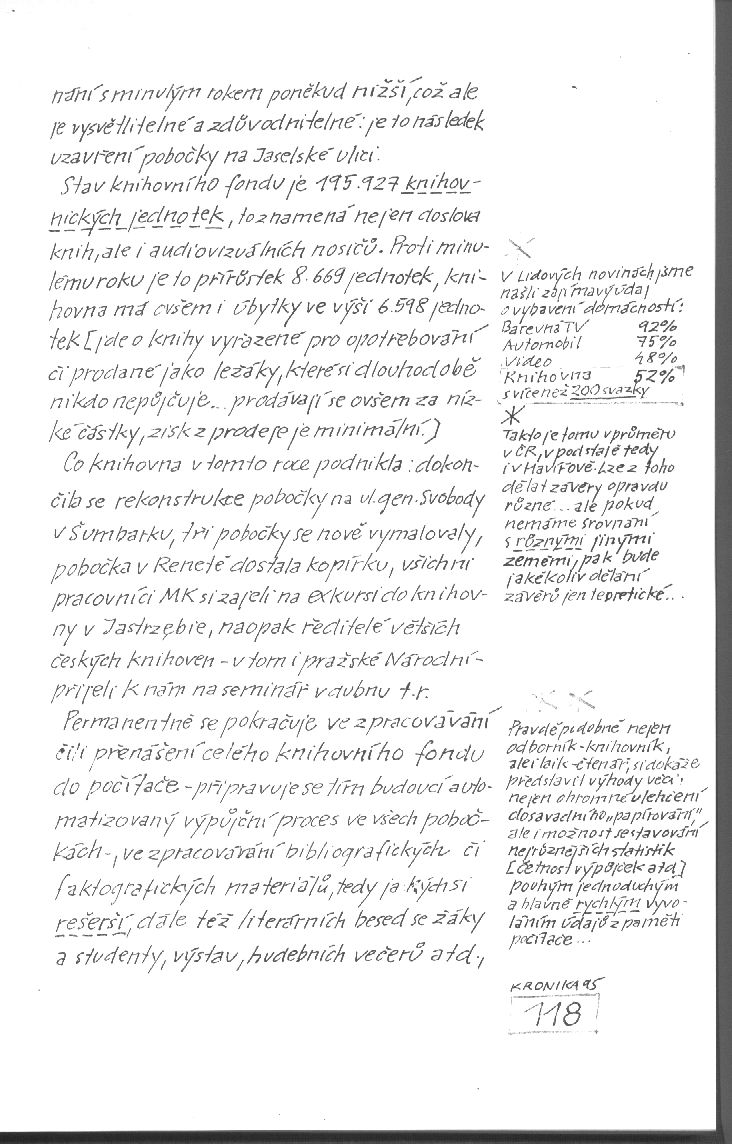 nání s minulým rokem poněkud nižší, což ale
je vysvětlitelné a zdůvodnitelné: je to následek
uzavření pobočky na Jaselské ulici.
Stav knihovního fondu je 195.927 knihov-
nických jednotek, to znamená nejen doslova
knih, ale i audiovizuálních nosičů. Proti minu-
lému roku je to přírůstek 8.669 jednotek, kni-
hovna má ovšem i úbytky ve výši 6.598 jedno-
tek [jde o knihy vyřazené pro opotřebování
či prodané jako ležáky, které si dlouhodobě
nikdo nepůjčuje... prodávají se ovšem za níz-
ké částky, zisk z prodeje je minimální.]
Co knihovna v tomto roce podnikla: dokon-
čila se rekonstrukce pobočky na ul. gen. Svobody
v Šumbarku, tři pobočky se nově vymalovaly,
pobočka v Reneté dostala kopírku, všichni
pracovníci MK si zajeli na exkursi do knihov-
ny v Jastrzębie, naopak ředitelé větších
českých knihoven - v tom i pražské Národní -
přijeli k nám na seminář v dubnu t.r.
Permanentně se pokračuje ve zpracovávání
čili přenášení celého knihovního fondu
do počítače - připravuje se tím budoucí auto-
matizovaný výpůjční proces ve všech poboč-
kách -, ve zpracovávání bibliografických či
faktografických materiálů, tedy jakýchsi
rešerší, dále též literárních besed se žáky
a studenty, výstav, hudebních večerů atd.,
V Lidových novinách jsme
našli zajímavý údaj
o vybavení domácností:
Barevná TV 92%
Automobil 75%
Video 48%
Knihovna 52%
s více než 200 svazky
*
Takto je tomu v průměru
v ČR, v podstatě tedy
i v Havířově. Lze z toho
dělat závěry opravdu
různé... ale pokud
nemáme srovnání
s různými jinými
zeměmi, pak bude
jakékoliv dělání
závěrů jen teoretické...
Pravděpodobně nejen
odborník-knihovník,
ale i laik-čtenář, si dokáže
představit výhody věci:
nejen ohromné ulehčení
dosavadního „papírování",
ale i možnost sestavování
nejrůznějších statistik
[četnost výpůjček atd.]
pouhým jednoduchým
a hlavně rychlým vyvo-
láním údajů z paměti
počítače...
KRONIKA 95
118